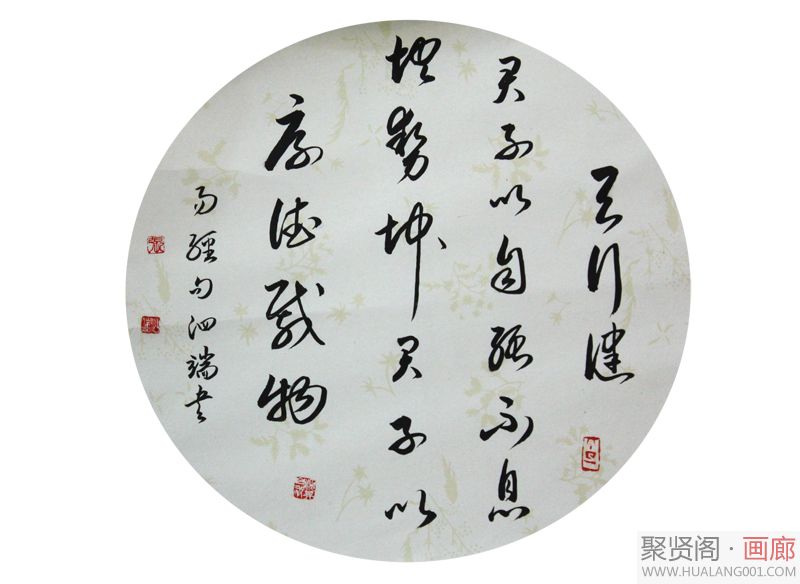 天行健
君子以自强不息
地势坤君子以
厚德载物
易經句泗端书
聚贤阁·画廊
WWW.HUALANG001.COM